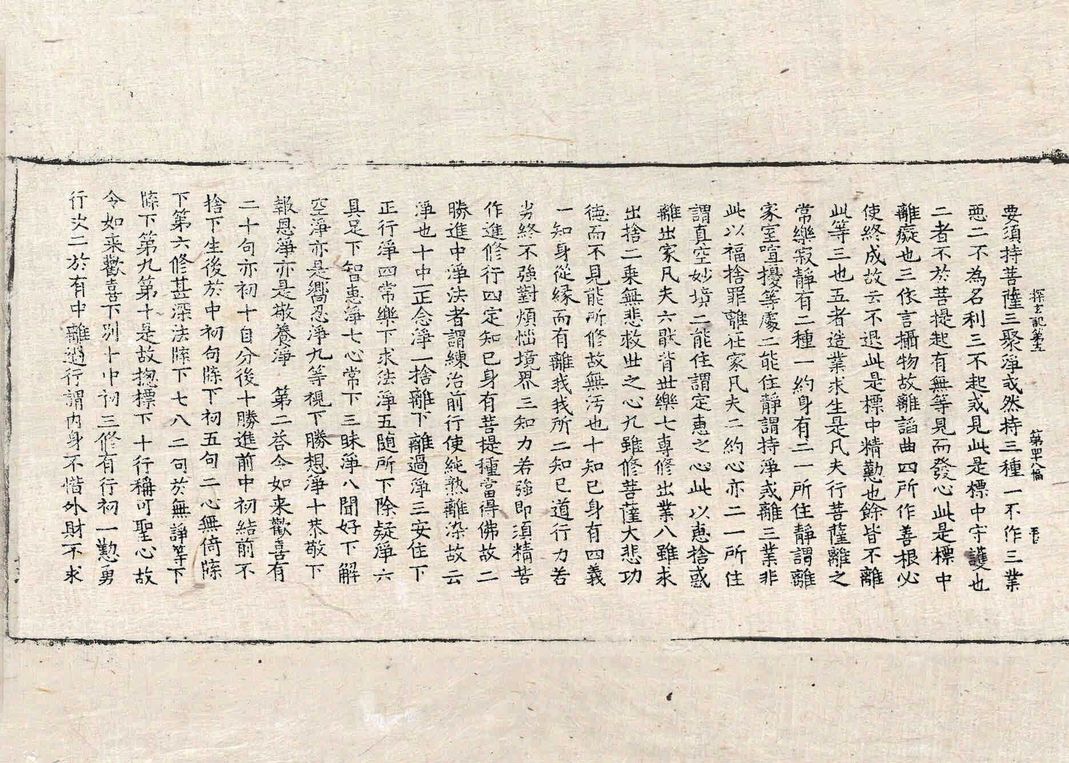 探玄記第五 第四十八幅
要須持菩薩三聚淨戒然持三種一不作三業
惡二不為名利三不起戒見此是標中守護也
二者不於菩提起有無等見而發心此是標中
離癡也三依言攝物故離謟曲四所作善根必
使終成故云不退此是標中精懃也餘皆不離
此等三也五者造業求生是凡夫行菩薩離之
常樂寂靜有二種一約身有二一所住靜謂離
家室喧擾等處二能住靜謂持淨戒離三業非
此以福捨罪離在家凡夫二約心亦二一所住
謂真空妙境二能住謂定惠之心此以惠捨惑
離出家凡夫六猒背世樂七專修出業八雖求
出捨二乗無悲救世之心九雖修菩薩大悲功
德而不見能所修故無污也十知已身有四義
一知身從緣而有離我我所二知已道行力若
劣終不強對煩惱境界三知力若強即須精苦
作進修行四定知已身有菩提種當得佛故二
勝進中淨法者謂練治前行使純熟離染故云
淨也十中一正念淨一捨離下離過淨三安住下
正行淨四常樂下求法淨五随所下除疑淨六
具足下智惠淨七心常下三昧淨八聞好下解
空淨亦是嚮忍淨九等視下勝想淨十恭敬下
報恩淨亦是敬養淨 第二荅令如来歡喜有
二十句亦初十自分後十勝進前中初結前不
捨下生後於中初句牒下初五句二心無倚牒
下第六修甚深法牒下七八二句於無諍等下
牒下第九第十是故揔標下十行稱可聖心故
令如来歡喜下別十中初三修有行初一懃勇
行次二於有中離過行謂內身不惜外財不求